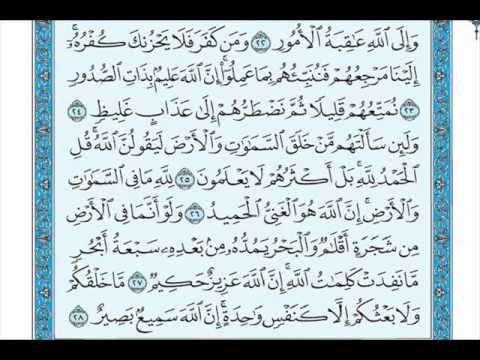 وَإِلَى ٱللَّهِ عَٰقِبَةُ ٱلْأُمُورِ ٢٢ وَمَن كَفَرَ فَلَا يَحْزُنكَ كُفْرُهُۥٓ ۚ
إِلَيْنَا مَرْجِعُهُمْ فَنُنَبِّئُهُم بِمَا عَمِلُوٓا۟ ۚ إِنَّ ٱللَّهَ عَلِيمٌۢ بِذَاتِ ٱلصُّدُورِ
٢٣ نُمَتِّعُهُمْ قَلِيلًا ثُمَّ نَضْطَرُّهُمْ إِلَىٰ عَذَابٍ غَلِيظٍ ٢٤
وَلَئِن سَأَلْتَهُم مَّنْ خَلَقَ ٱلسَّمَٰوَٰتِ وَٱلْأَرْضَ لَيَقُولُنَّ ٱللَّهُ ۚ قُلِ
ٱلْحَمْدُ لِلَّهِ ۚ بَلْ أَكْثَرُهُمْ لَا يَعْلَمُونَ ٢٥ لِلَّهِ مَا فِى ٱلسَّمَٰوَٰتِ
وَٱلْأَرْضِ ۚ إِنَّ ٱللَّهَ هُوَ ٱلْغَنِىُّ ٱلْحَمِيدُ ٢٦ وَلَوْ أَنَّمَا فِى ٱلْأَرْضِ
مِن شَجَرَةٍ أَقْلَٰمٌ وَٱلْبَحْرُ يَمُدُّهُۥ مِنۢ بَعْدِهِۦ سَبْعَةُ أَبْحُرٍ
مَّا نَفِدَتْ كَلِمَٰتُ ٱللَّهِ ۗ إِنَّ ٱللَّهَ عَزِيزٌ حَكِيمٌ ٢٧ مَّا خَلْقُكُمْ
وَلَا بَعْثُكُمْ إِلَّا كَنَفْسٍ وَٰحِدَةٍ ۗ إِنَّ ٱللَّهَ سَمِيعٌۢ بَصِيرٌ ٢٨